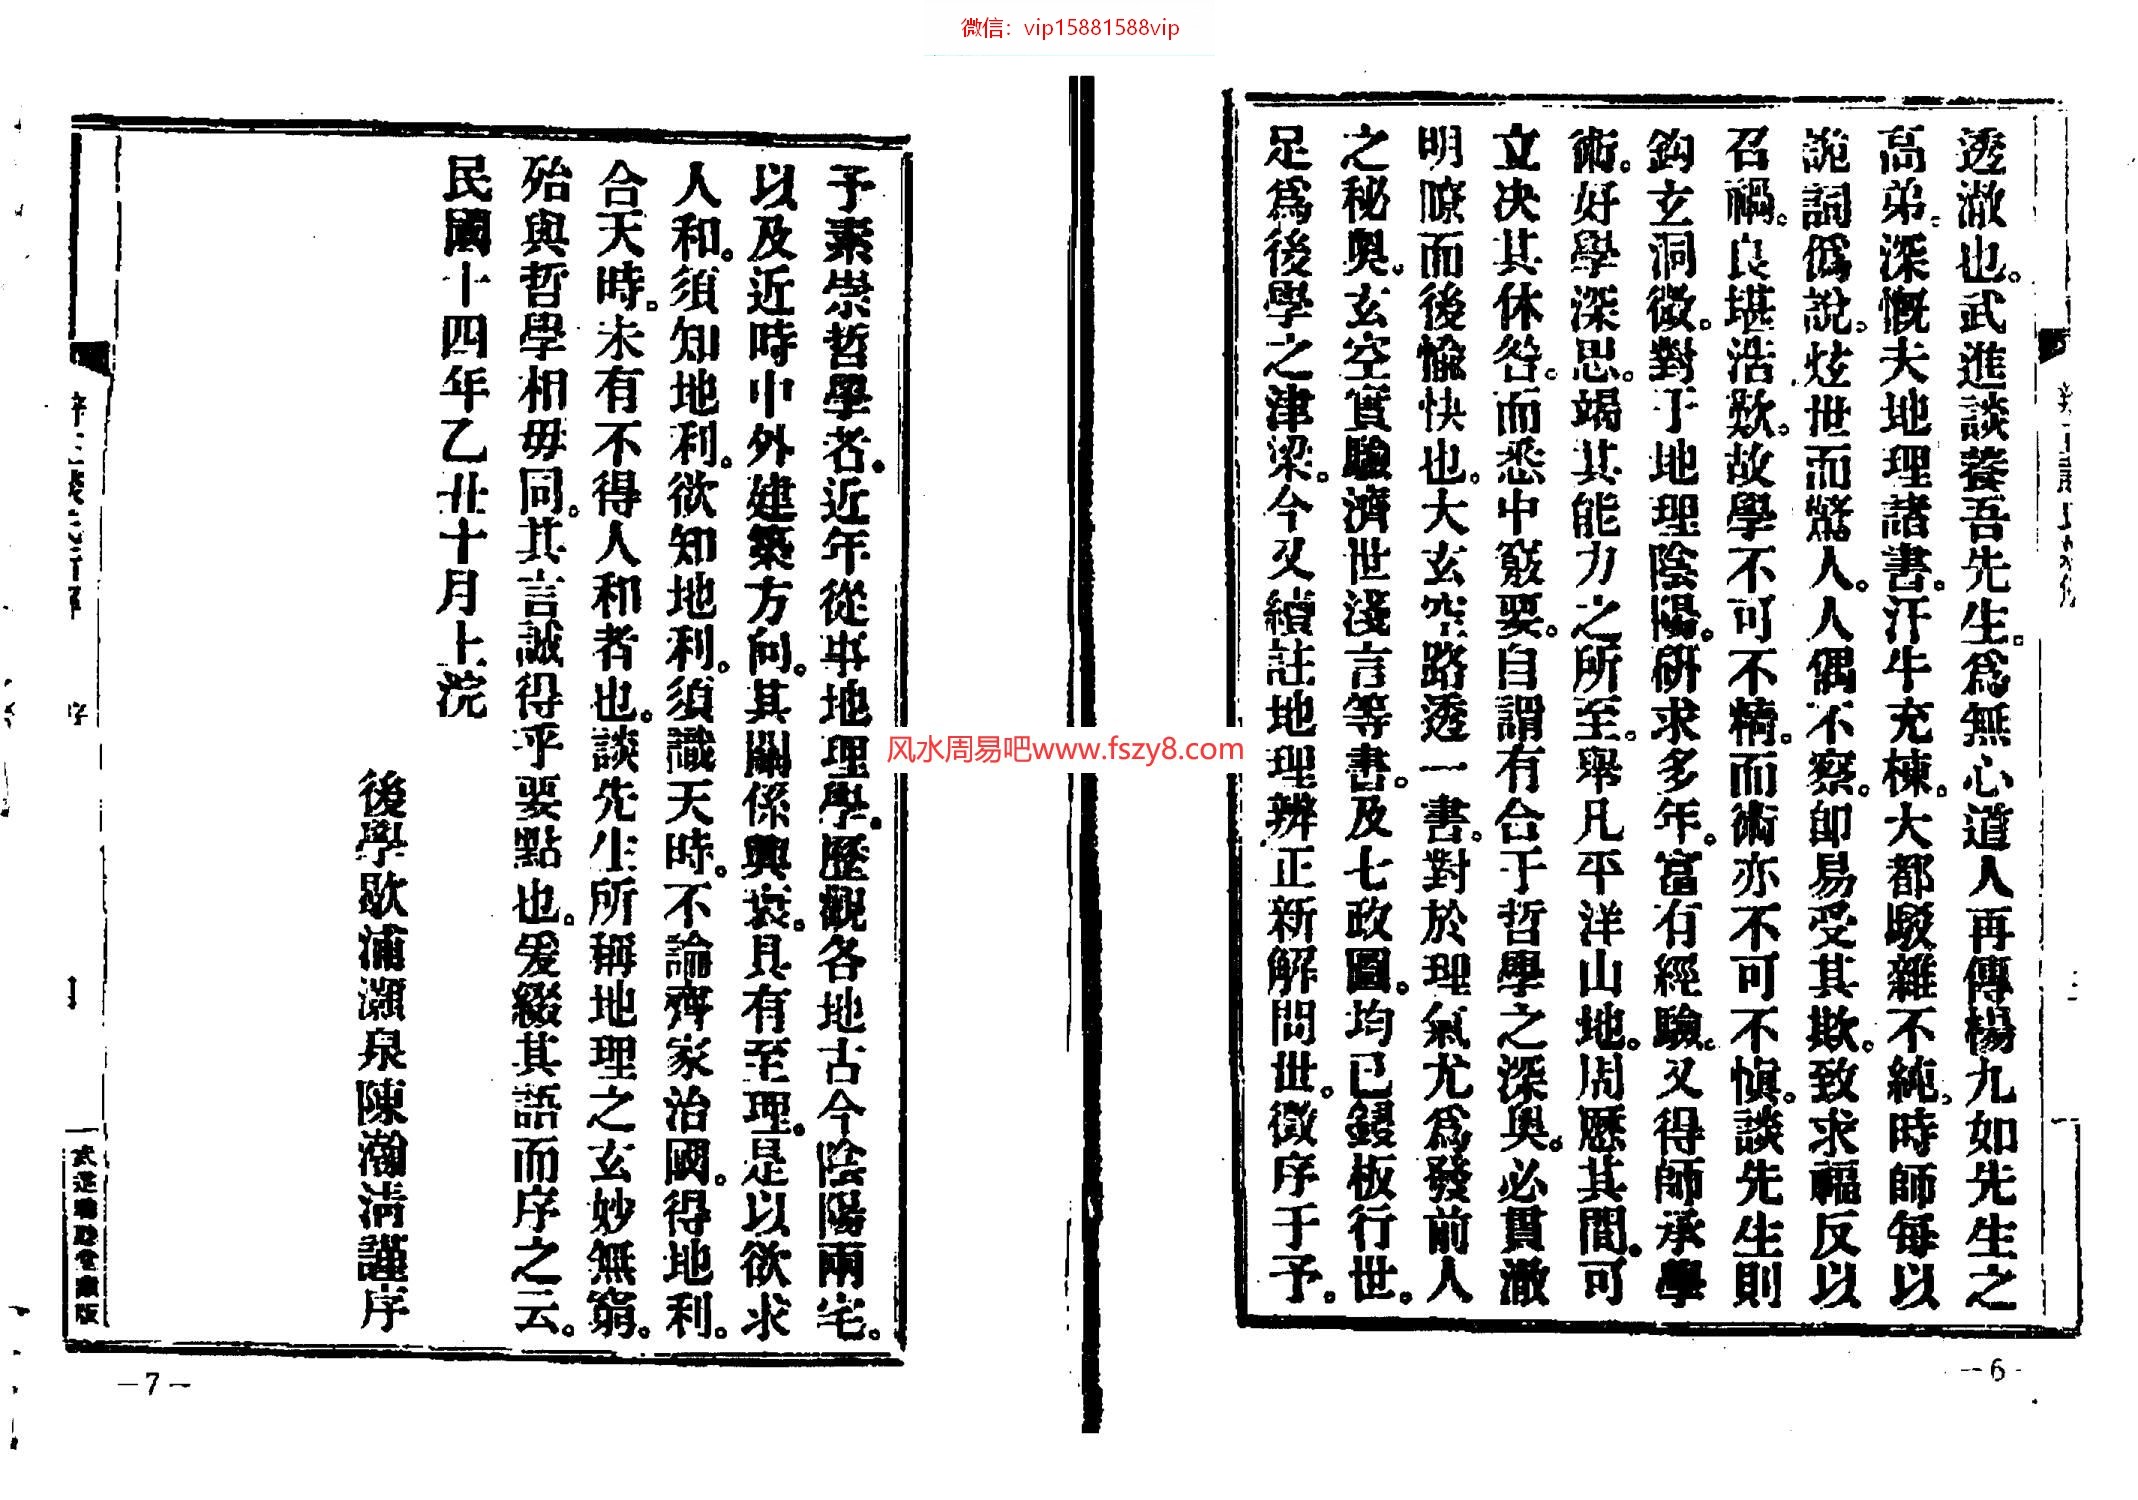 微信：vip15881588vip
透澈也。武進談養吾先生。爲無心道人再傳楊九如先生之
高弟。深慨大地理諸書。汗牛充棟。大都駁雜不純。時師每以
詭詞僞說。炫世而驚人。人偶不察。卽易受其欺。致求福反以
召禍。良堪浩歎。故學不可不精。而術亦不可不愼。談先生則
鈎玄洞微。對于地理陰陽。硏求多年。富有經驗。又得師承學
術。好學深思。竭其能力之所至。舉凡平洋山地。周歷其間。可
立决其休咎。而悉中窾要。自謂有合于哲學之深奥。必貫澈
明瞭而後愉快也。大玄空路透一書。對於理氣尤爲發前人
之秘奥。玄空實驗濟世淺言等書。及七政圖。均已鋟板行世。
足爲後學之津梁。今又續註地理辨正新解問世。徵序于予。
—6-
予素崇哲學者。近年從事地理學。歷觀各地古今陰陽兩宅。
以及近時中外建築方向。其關係興衰。具有至理。是以欲求
人和。須知地利。欲知地利。須識天時。不論齊家治國。得地利。
合天時。未有不得人和者也。談先生所稱地理之玄妙無窮。
殆與哲學相毋同。其言誠得乎要點也。爰綴其語而序之云。
民國十四年乙丑十月上浣
後學歇浦灝泉陳瀚淸謹序
序
武進鞠躬堂藏版
—7—
风水周易吧www.fszy8.com